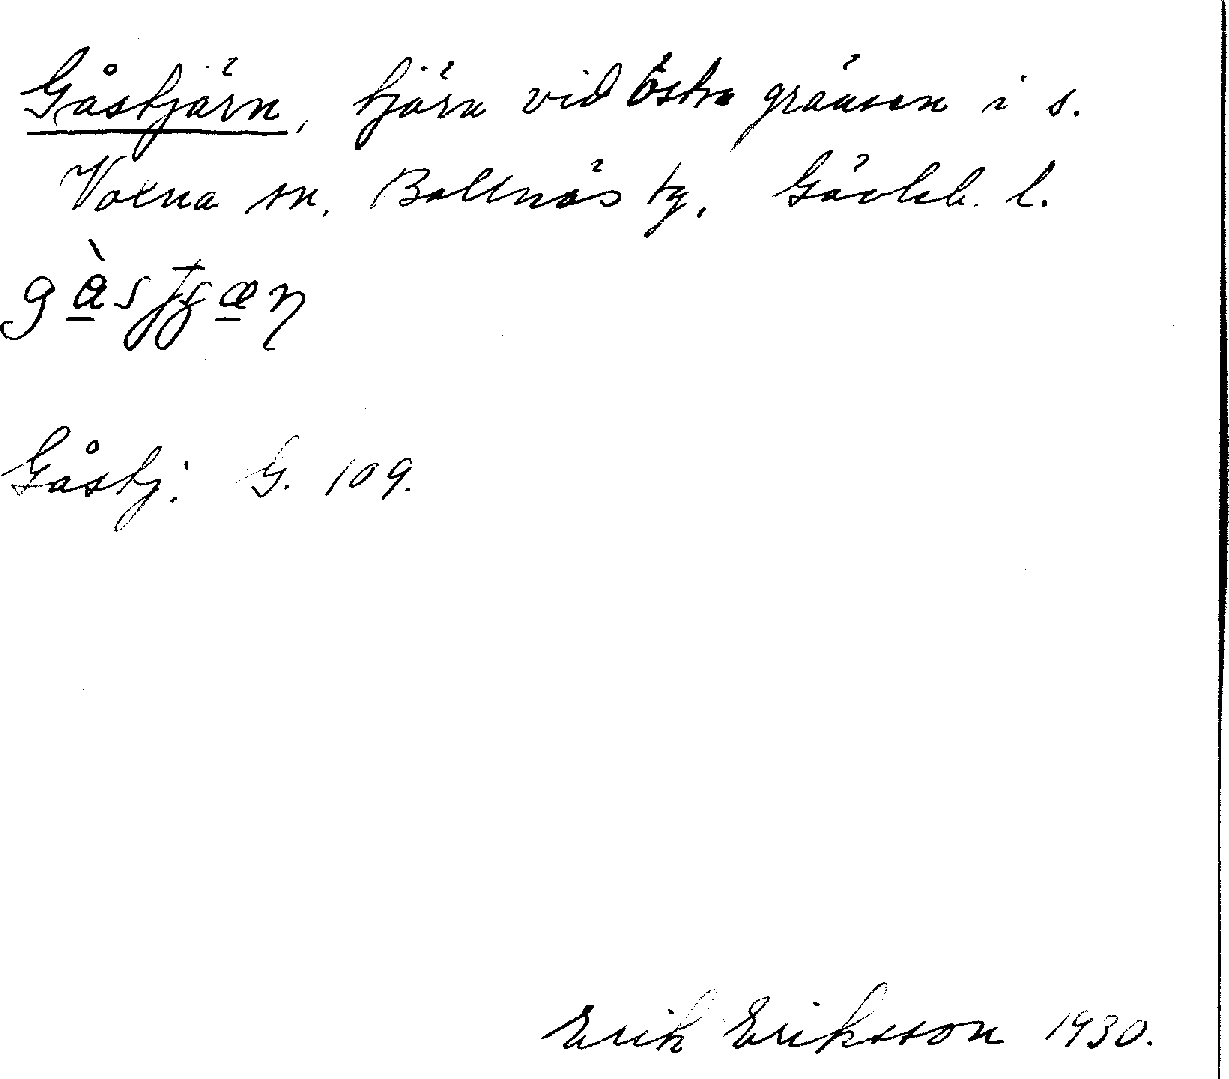 Gåstjärn, tjärn vid östra gränsen i s.
Voxna sn. Bollnäs tg. Gävleb. l.
Gåstj. G. 109.
Erik Eriksson 1930.